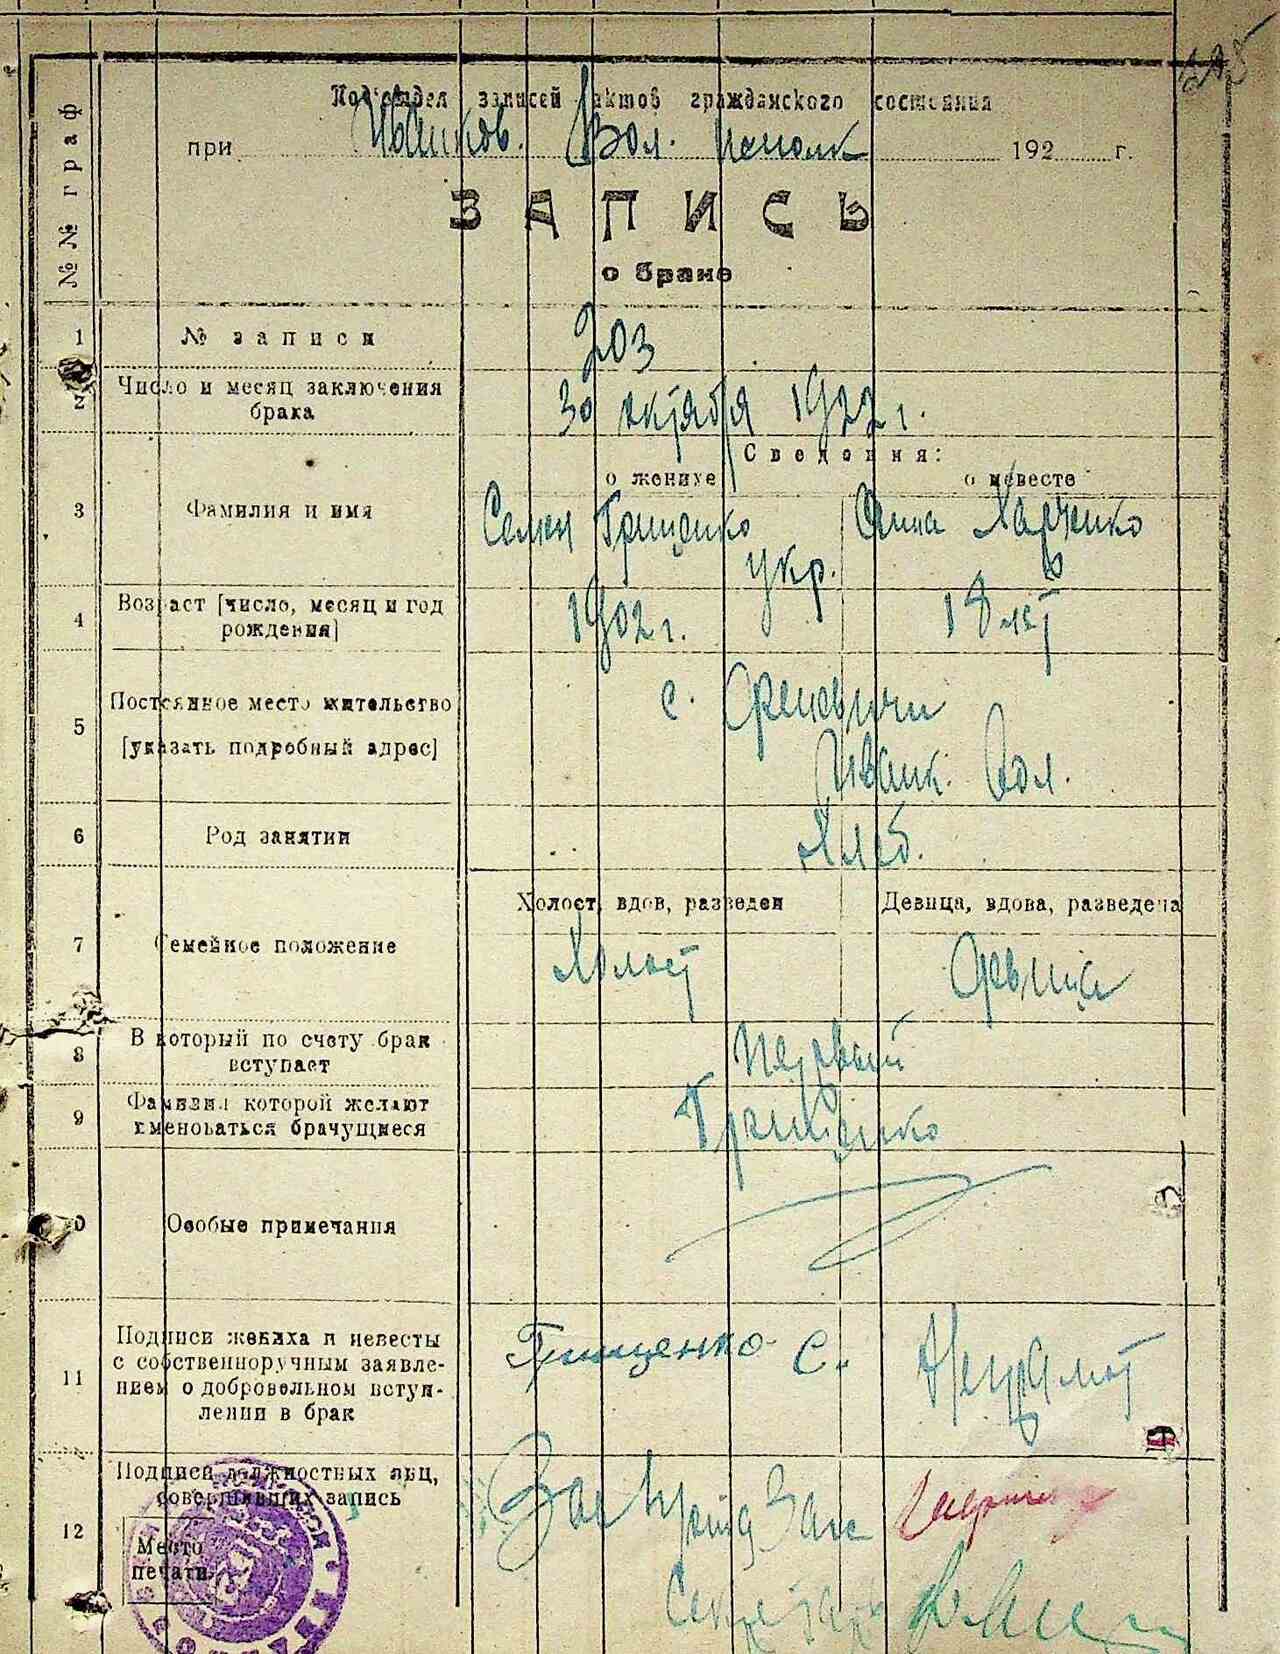 205
Под'отдел записей актов гражданского состояния
при Иванков. Вол. исполк 192 г.
№№ граф
ЗАПИСЬ
о браке
1 № записи 203
2 Число и месяц заключения брака 30 октября 1922 г.
Сведения:
о женихе о невесте
3 Фамилия и имя Семен Грищенко Анна Харченко
укр.
4 Возраст [число, месяц и год рождения] 1902 г. 18 лет
5 Постоянное место жительство [указать подробный адрес] с.
Иванк. Вол.
6 Род занятий Хлеб.
Холост, вдов, разведен Девица, вдова, разведена
7 Семейное положение Холост Девица
8 В который по счету брак вступает Первый
9 Фамилия которой желают именоваться брачущиеся Грищенко
10 Особые примечания
11 Подписи жениха и невесты с собственноручным заявлением о добровольном вступлении в брак Грищенко С. Неграмот
12 Подписи должностных лиц, совершивших запись Зав
Место печати
Секретарь